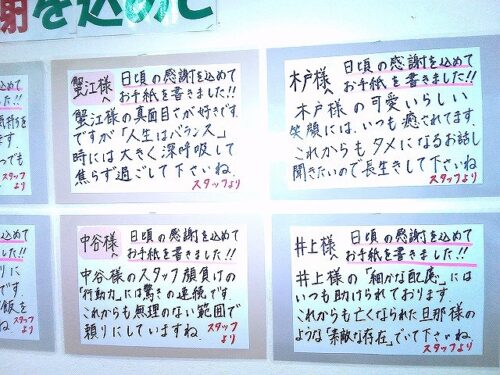 謝を込めて
蟹江様へ
日頃の感謝を込めて
お手紙を書きました!!
蟹江様の真面目さが好きです。
ですが「人生はバランス」
時には大きく深呼吸して
焦らず過ごして下さいね。
スタッフより
木戸様へ
日頃の感謝を込めて
お手紙を書きました!!
木戸様の可愛いらしい
笑顔には、いつも癒されてます。
これからもタメになるお話し
聞きたいので長生きして下さいね。
スタッフより
中谷様へ
日頃の感謝を込めて
お手紙を書きました!!
中谷様のスタッフ顔負けの
「行動力」には驚きの連続です。
これからも無理のない範囲で
頼りにしていますね。
スタッフより
井上様へ
日頃の感謝を込めて
お手紙を書きました!!
井上様の「細かな配慮」には
いつも助けられております。
これからも亡くなられた旦那様の
ような「素敵な存在」でいて下さいね。
スタッフより